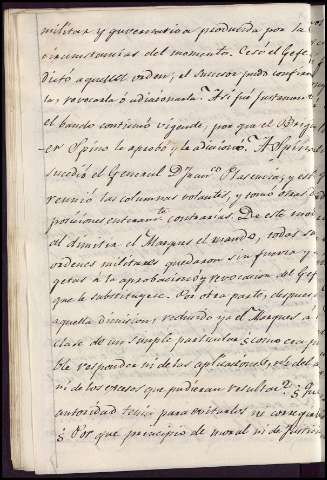 militar y gubernativa producida por la
circunstancias del momento. Cesó el Gefe
dictó aquella orden; el sucesor pudo confirmar
la, revocarla ó adicionarla. Así fué justamente
el bando continuó vigente, por que el Brigad
er Spino lo aprobó y lo adicionó. A Spino
sucedió el General Dn Juan Plasencia, y est
reunió las columnas volantes, y tomó otras di
posiciones enteramte contrarias. De este mo
al dimitir el Marques el mando, todas su
ordenes militares quedaron sin fuerza y
getas á la aprobacion y revocacion del Gef
que le substituyese. Por otra parte, despues
aquella dimision, reducido ya el Marques a
clase de un simple particular ¿como era pa
ble responder ni de las aplicaciones, ni del a
ni de los excesos que pudieran resultar? ¿Qu
autoridad tenia para evitarlos ni corregir
¿Por que principio de moral ni de Justicia